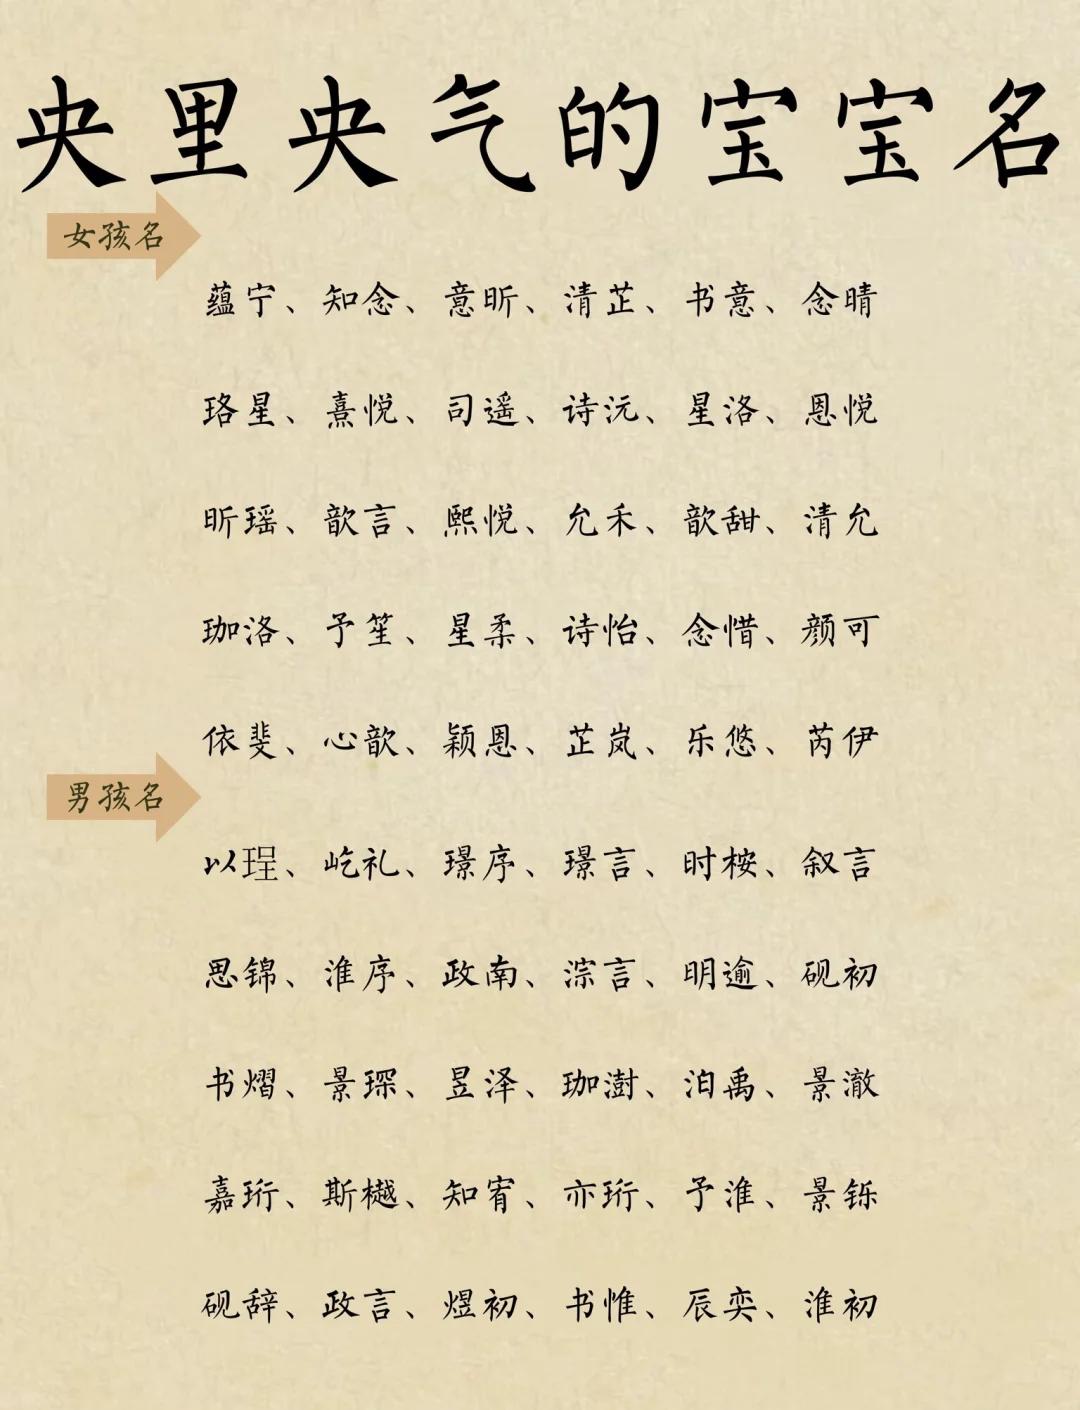 央里央气的宝宝名
女孩名
蕴宁、知念、意昕、清芷、书意、念晴
珞星、熹悦、司遥、诗沅、星洛、恩悦
昕瑶、歆言、熙悦、允禾、歆甜、清允
珈洛、予笙、星柔、诗怡、念惜、颜可
依斐、心歆、颖恩、芷岚、乐悠、芮伊
男孩名
以珵、屹礼、璟序、璟言、时桉、叙言
思锦、淮序、政南、淙言、明逾、砚初
书熠、景琛、昱泽、珈澍、洎禹、景澈
嘉珩、斯樾、知宥、亦珩、予淮、景铄
砚辞、政言、煜初、书惟、辰奕、淮初